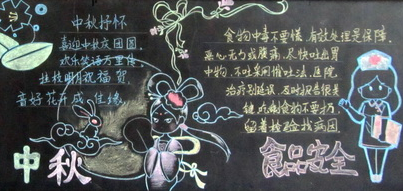 中秋抒怀
喜迎中秋庆团圆
欢乐笑语万里传
挂枝明月祝福贺
喜好花开成佳缘
中秋
食物中毒不要慌，有效处理是保障，
恶心无力或腹痛，尽快吐出胃
中物，不吐采用催吐法，医院
治疗别延误，及时报告很关
键，吃剩食物不要扔，
留着检验找病因
食品安全